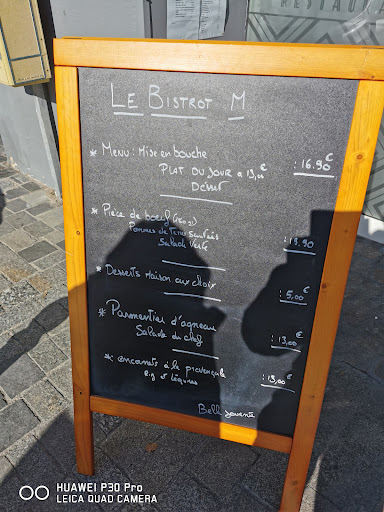 RESTAU
LE BISTROT M
* MENU : Mise en bouche
PLAT DU JOUR a 13,00€ : 16.90€
Dessert
* Pièce de boeuf (180g)
Pommes de Terre Sautées
Salade Verte : 19.90
* Desserts Maison aux choix : 5,00€
* Parmentier d'agneau
Salade du chef : 13,00€
* encornets à la provençale
riz et légumes : 13,00€
HUAWEI P30 Pro
LEICA QUAD CAMERA